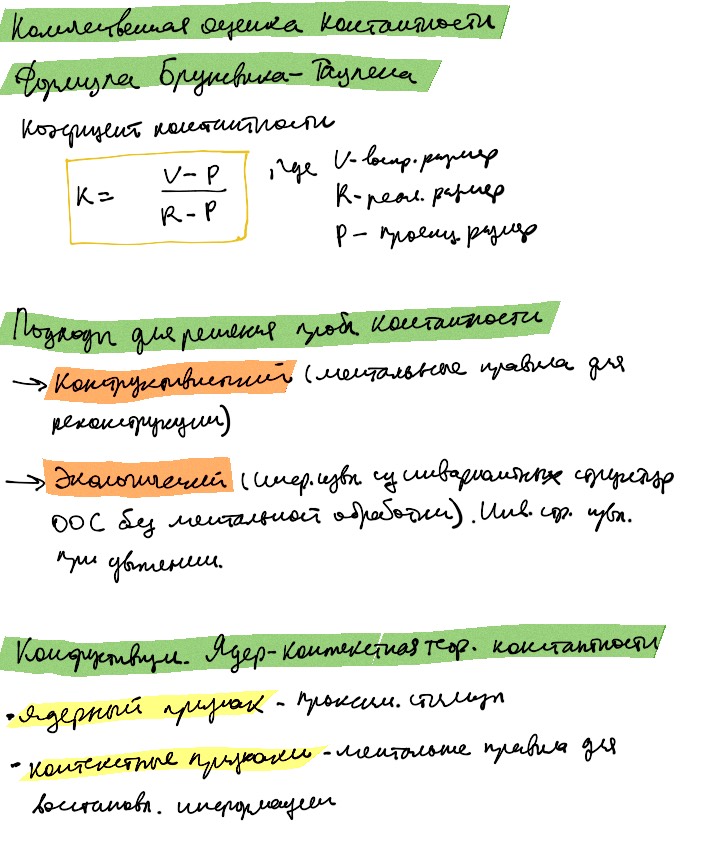 Количественная оценка константности
Формула Брунсвика-Таулеса
Коэфициент константности
K = (V - P) / (R - P) , где V - воспр. размер
R - реал. размер
P - проекц. размер
Подходы для решения проб. константности
→ Конструктивистский (ментальные правила для
реконструкции)
→ Экологический (инвариантных структур
ООС без ментальной обработки). Инв. стр. извл.
при движении.
Конструктивизм. Ядер-контекстная теор. константности
• Ядерный признак - проксим. стимул
- контекстные признаки - ментальные правила для
восстановл. информации